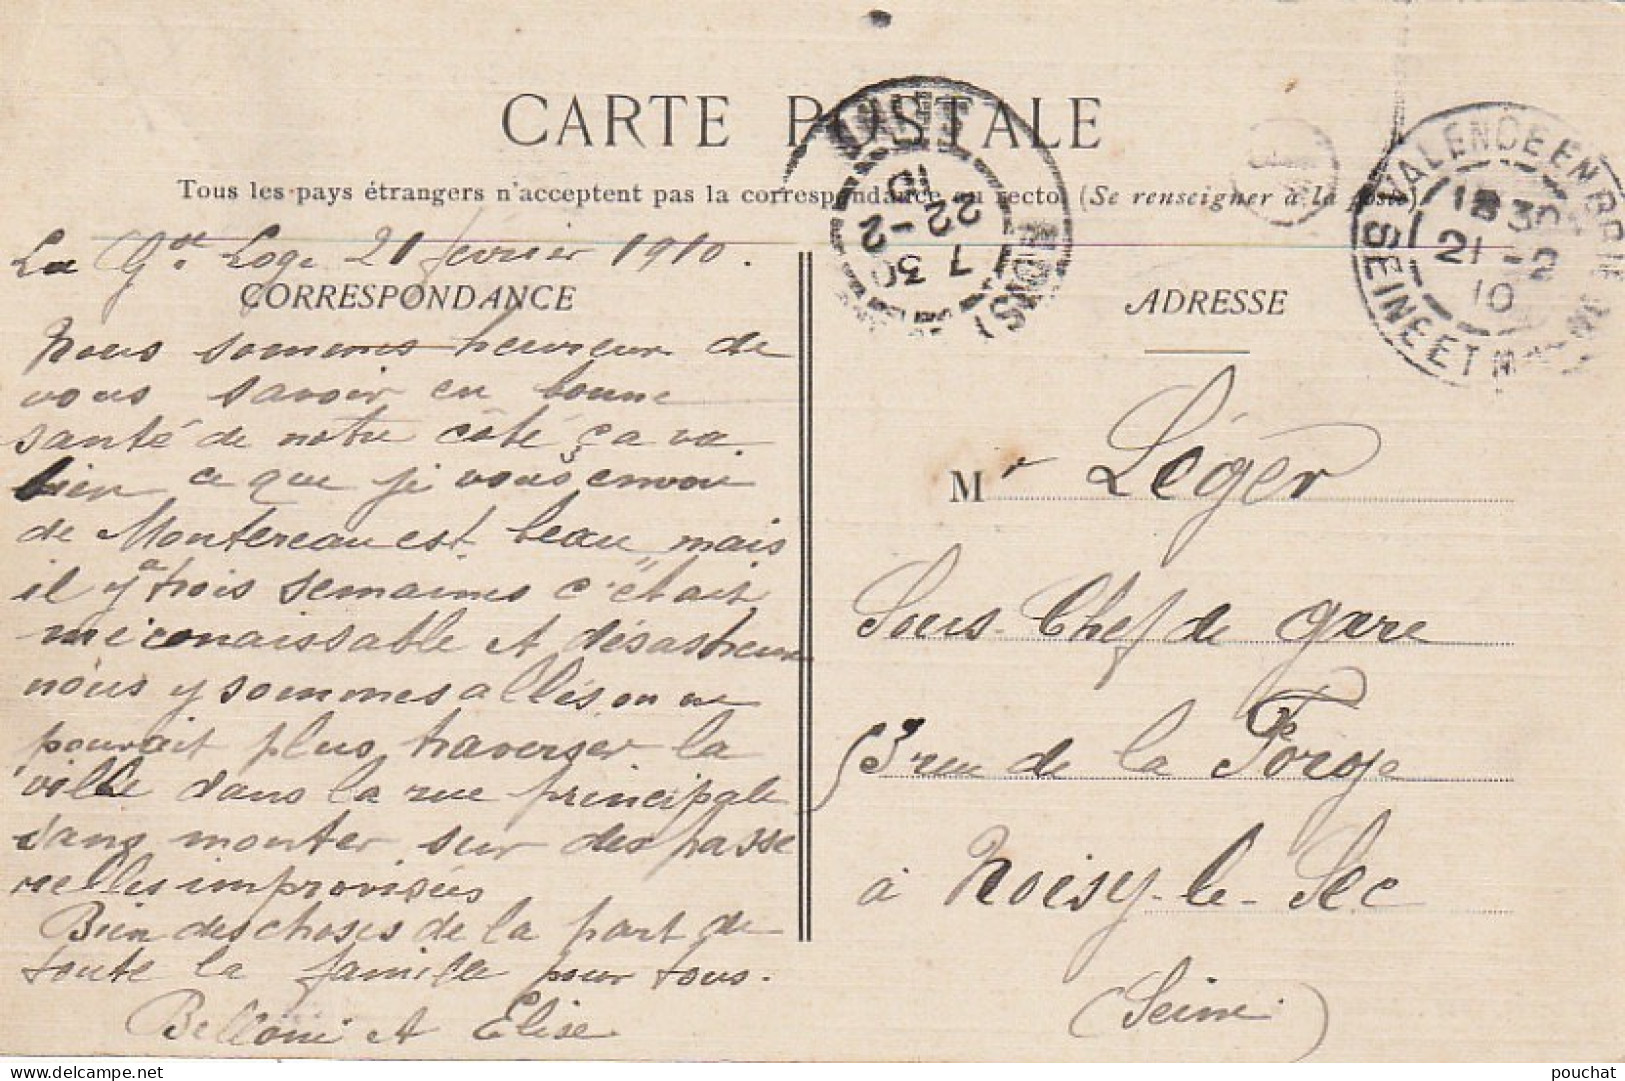 CARTE POSTALE
Tous les pays étrangers n'acceptent pas la correspondance au recto. (Se renseigner à la poste)
VALENCE EN BRIE
SEINE ET MARNE
21 - 2
10
7 30
22 - 2
10
(SEINE)
La Gde Loge 21 février 1910.
CORRESPONDANCE
Nous sommes heureux de
vous savoir en bonne
santé de notre côté ça va
bien ce que je vous envoie
de Montereau est beau mais
il y a trois semaines c'était
méconaissable et désastreux
nous y sommes allés on ne
pouvait plus traverser la
ville dans la rue principale
sans monter sur des passe
relles improvisées
Bien des choses de la part de
toute la famille pour tous.
Belloni et Elise
ADRESSE
Mr Léger
Sous-Chef de gare
53 rue de la Forge
à Noisy-le-Sec
(Seine)
pouchat